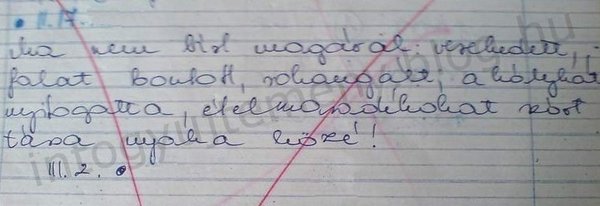 II. 17.
Ma nem birt magával: verekedett,
falat bontott, rohangált, a kályhát
nyitogatta, ételmaradékokat szórt
társa nyaka közé!
III. 2.
intogyujtemeny.blog.hu